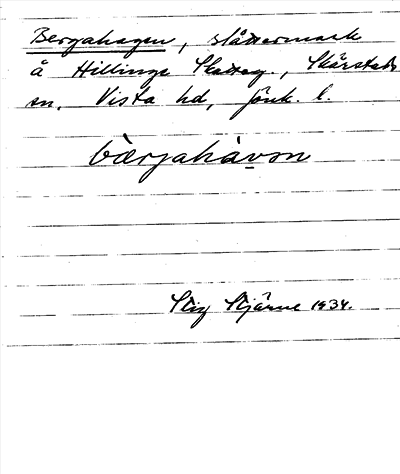 Bergahagen, slåttermark
å Hillinge Skatteg., Skärstads
sn. Vista hd, Jönk. l.
bàrjahàvɘn
Stig Stjärne 1934.